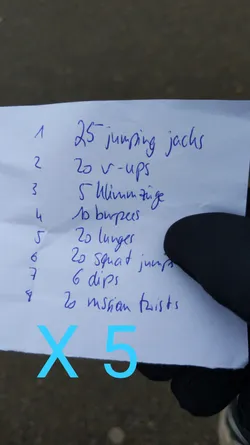 1 25 jumping jacks
2 20 v-ups
3 5 Klimmzüge
4 10 burpees
5 20 lunges
6 20 squat jumps
7 6 dips
8 20 russian twists
X 5